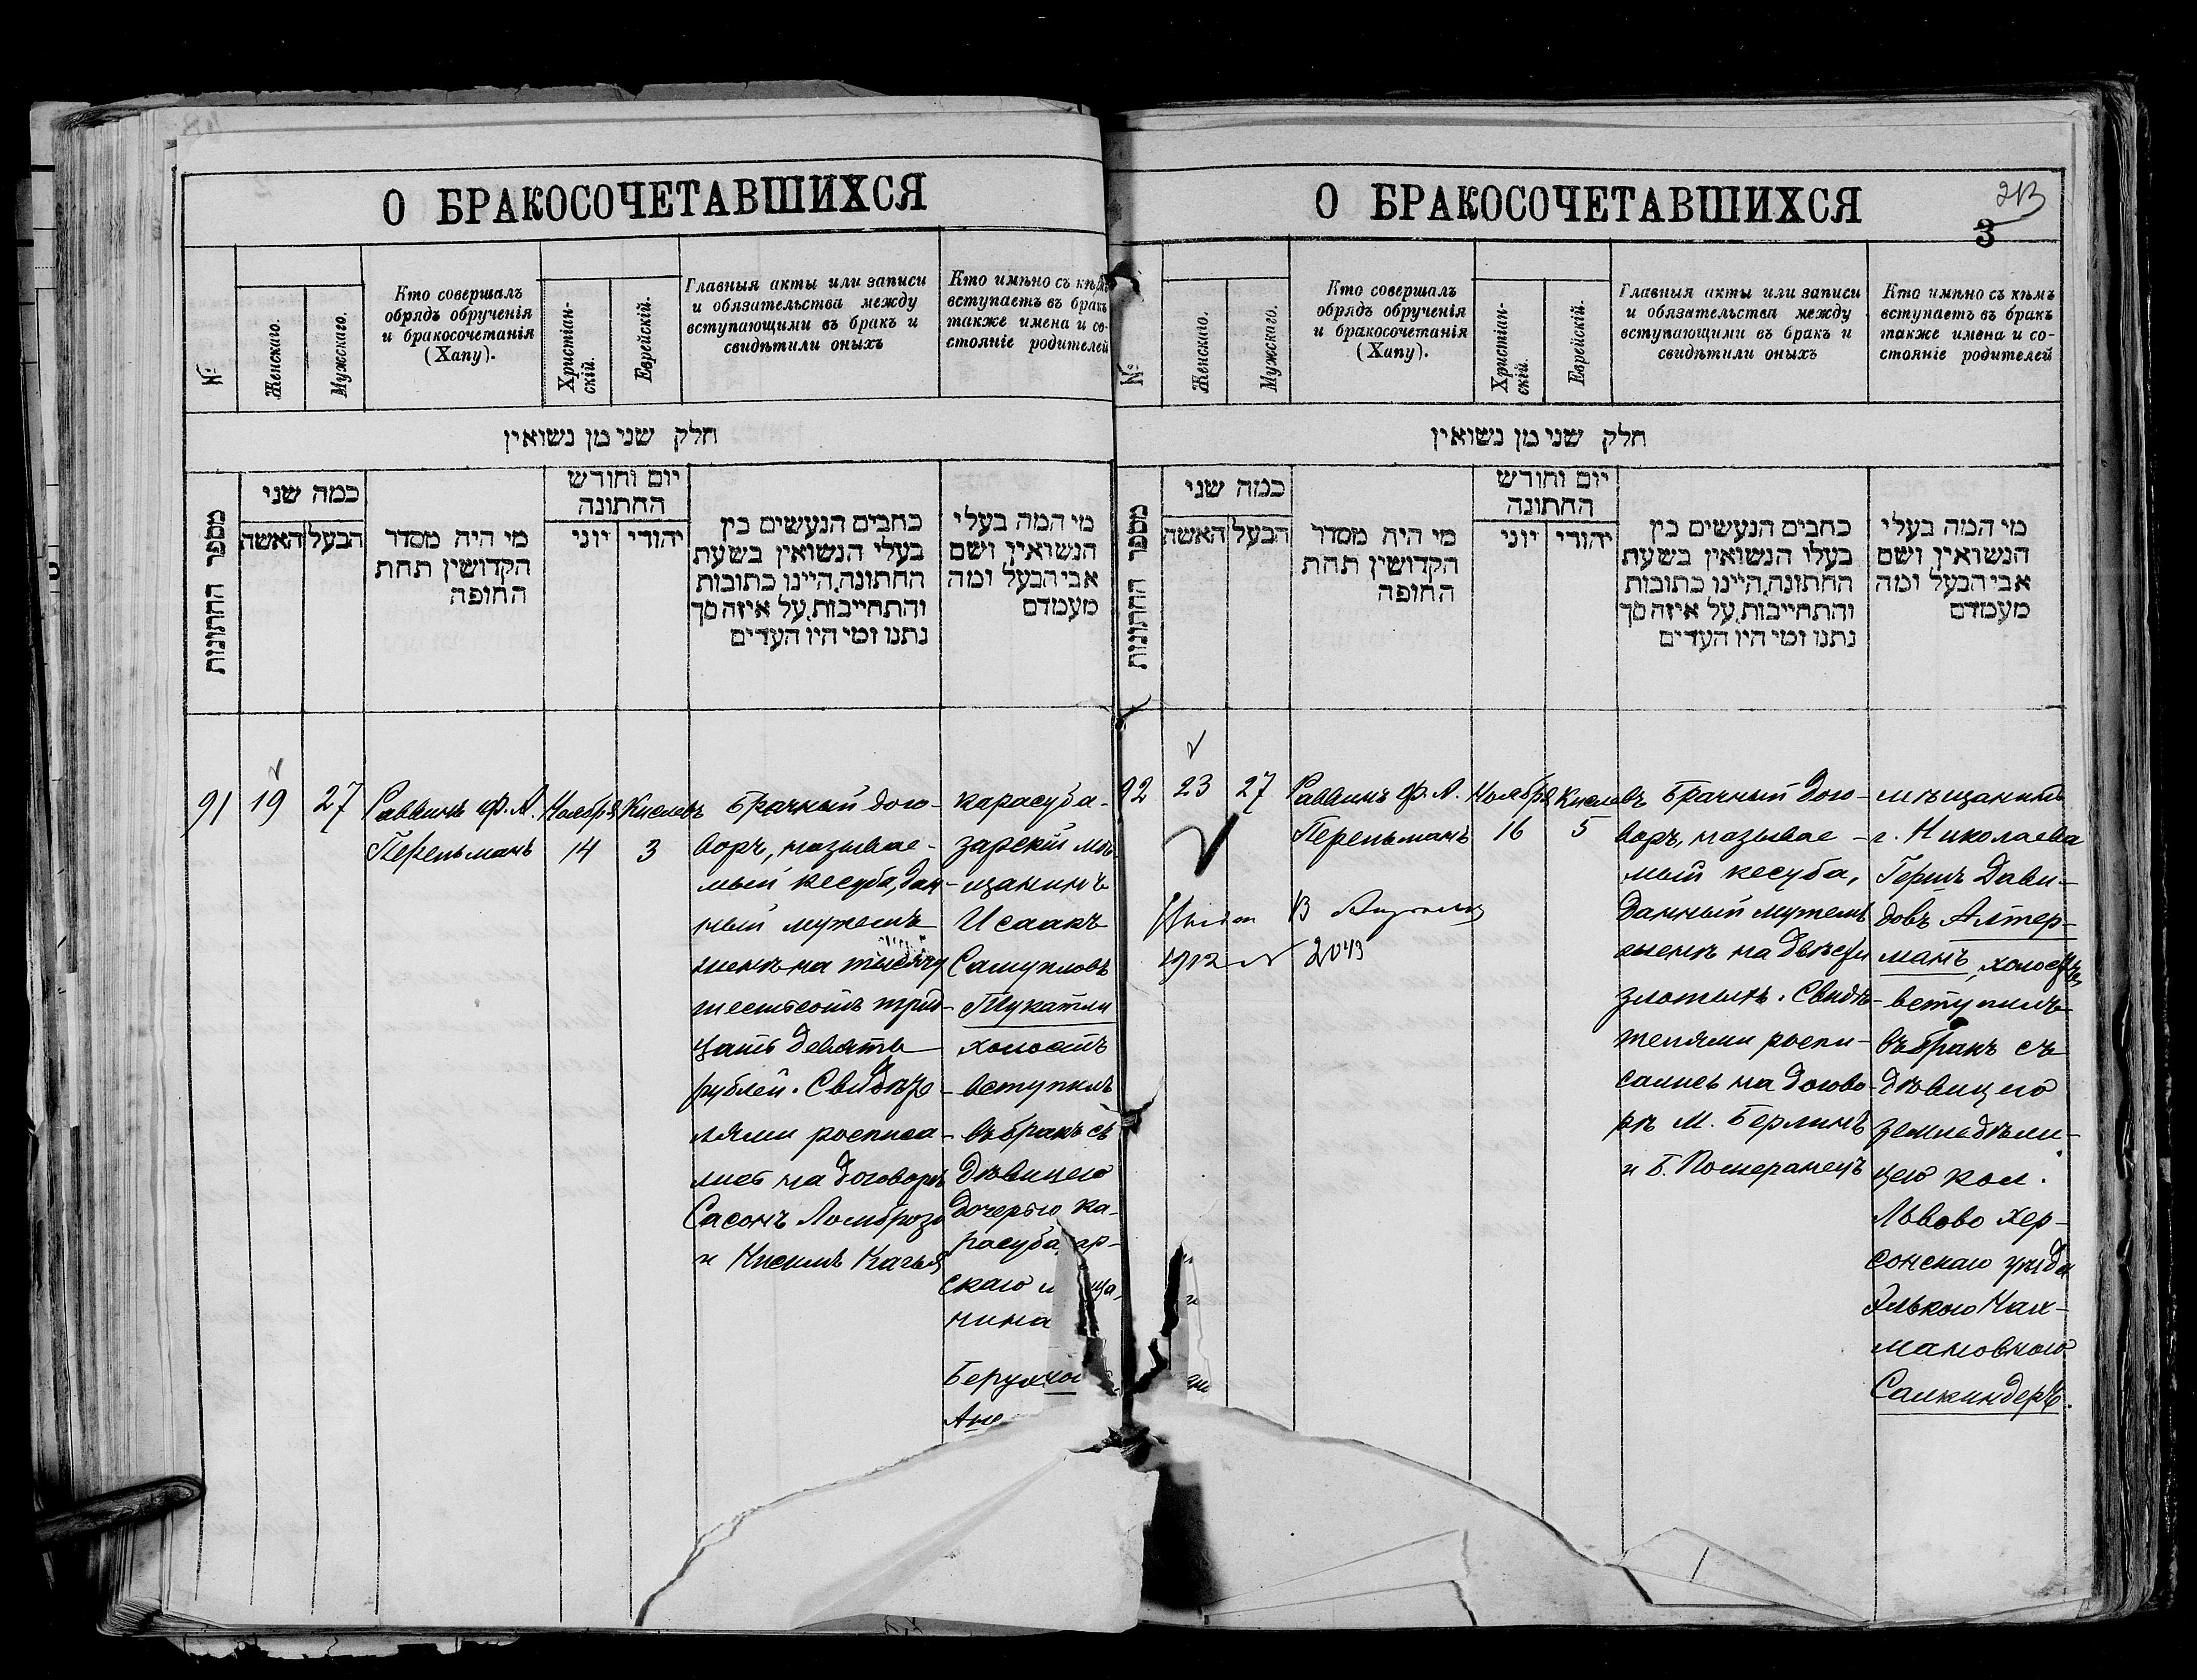 О БРАКОСОЧЕТАВШИХСЯ
№
Женскаго.
Мужскаго.
Кто совершалъ
обрядъ обрученія
и бракосочетанія
(Хапу).
Христіан-
скій.
Еврейскій.
Главныя акты или записи
и обязательства между
вступающими въ бракъ и
свидѣтили оныхъ
Кто имѣно съ кѣмъ
вступаетъ въ бракъ
также имена и со-
стояніе родителей
חלק שני מן נשואין
מספר החתונות
כמה שני
האשה
הבעל
מי היה מסדר
הקדושין תחת
החופה
יום וחודש
החתונה
יוני
יהודי
כתבים הנעשים בין
בעלי הנשואין בשעת
החתונה, היינו כתובות
והתחייבות, על איזה סך
נתנו ומי היו העדים
מי המה בעלי
הנשואין ושם
אבי הבעל ומה
מעמדם
91
19
27
Раввинъ Ф. А.
Перельманъ
Ноября
14
Кислевъ
3
Брачный дого-
воръ, называе-
мый кесуба, дан-
ный мужемъ
женѣ на тысячу
шестьсотъ трид-
цать девять
рублей. Свидѣте-
лями росписа-
лись на договорѣ
Сасонъ Ломброзо
и
карасуба-
зарскій мѣ-
щанинъ
Исаакъ
Самуиловъ
холостъ
вступилъ
въ бракъ съ
дѣвицею
дочерью ка-
скаго
нина
О БРАКОСОЧЕТАВШИХСЯ
213
3
№
Женскаго.
Мужскаго.
Кто совершалъ
обрядъ обрученія
и бракосочетанія
(Хапу).
Христіан-
скій.
Еврейскій.
Главныя акты или записи
и обязательства между
вступающими въ бракъ и
свидѣтили оныхъ
Кто имѣно съ кѣмъ
вступаетъ въ бракъ
также имена и со-
стояніе родителей
חלק שני מן נשואין
מספר החתונות
כמה שני
האשה
הבעל
מי היה מסדר
הקדושין תחת
החופה
יום וחודש
החתונה
יוני
יהודי
כתבים הנעשים בין
בעלי הנשואין בשעת
החתונה, היינו כתובות
והתחייבות, על איזה סך
נתנו ומי היו העדים
מי המה בעלי
הנשואין ושם
אבי הבעל ומה
מעמדם
92
23
27
Раввинъ Ф. А.
Перельманъ
Ноября
16
Кислевъ
5
1912
2043
Брачный дого-
воръ, называе-
мый кесуба,
данный мужемъ
женѣ на двѣсти
злотыхъ. Свидѣ-
телями роспи-
сались на догово-
рѣ М. Берлинъ
и Б. Померанецъ
мѣщанинъ
г. Николаева
Гершъ Дави-
довъ Алтер-
манъ, холостъ
вступилъ
въ бракъ съ
дѣвицею
земледѣли-
цею кол.
Львово Хер-
сонскаго уѣзда
Элькою Нах-
мановною
Салкиндеръ.